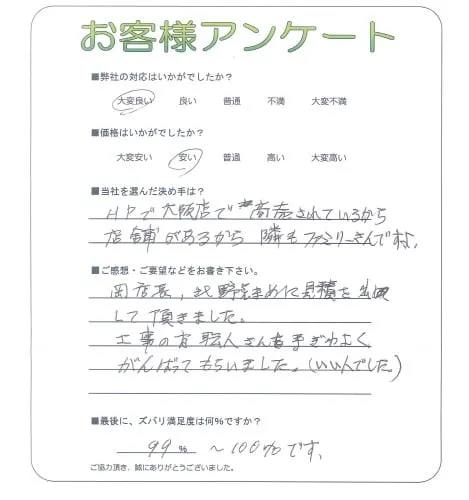 お客様アンケート
■弊社の対応はいかがでしたか？
大変良い 良い 普通 不満 大変不満
■価格はいかがでしたか？
大変安い 安い 普通 高い 大変高い
■当社を選んだ決め手は？
HPで大阪店で商売されているから
店舗があるから 隣もファミリーさんですよ。
■ご感想・ご要望などをお書き下さい。
岡店長、北野さまめに見積を出
して頂きました。
工事の方 職人さん達手ぎわよく
がんばってもらいました。(いい人でした)
■最後に、ズバリ満足度は何％ですか？
99％ ～100％です。
ご協力頂き、誠にありがとうございました。